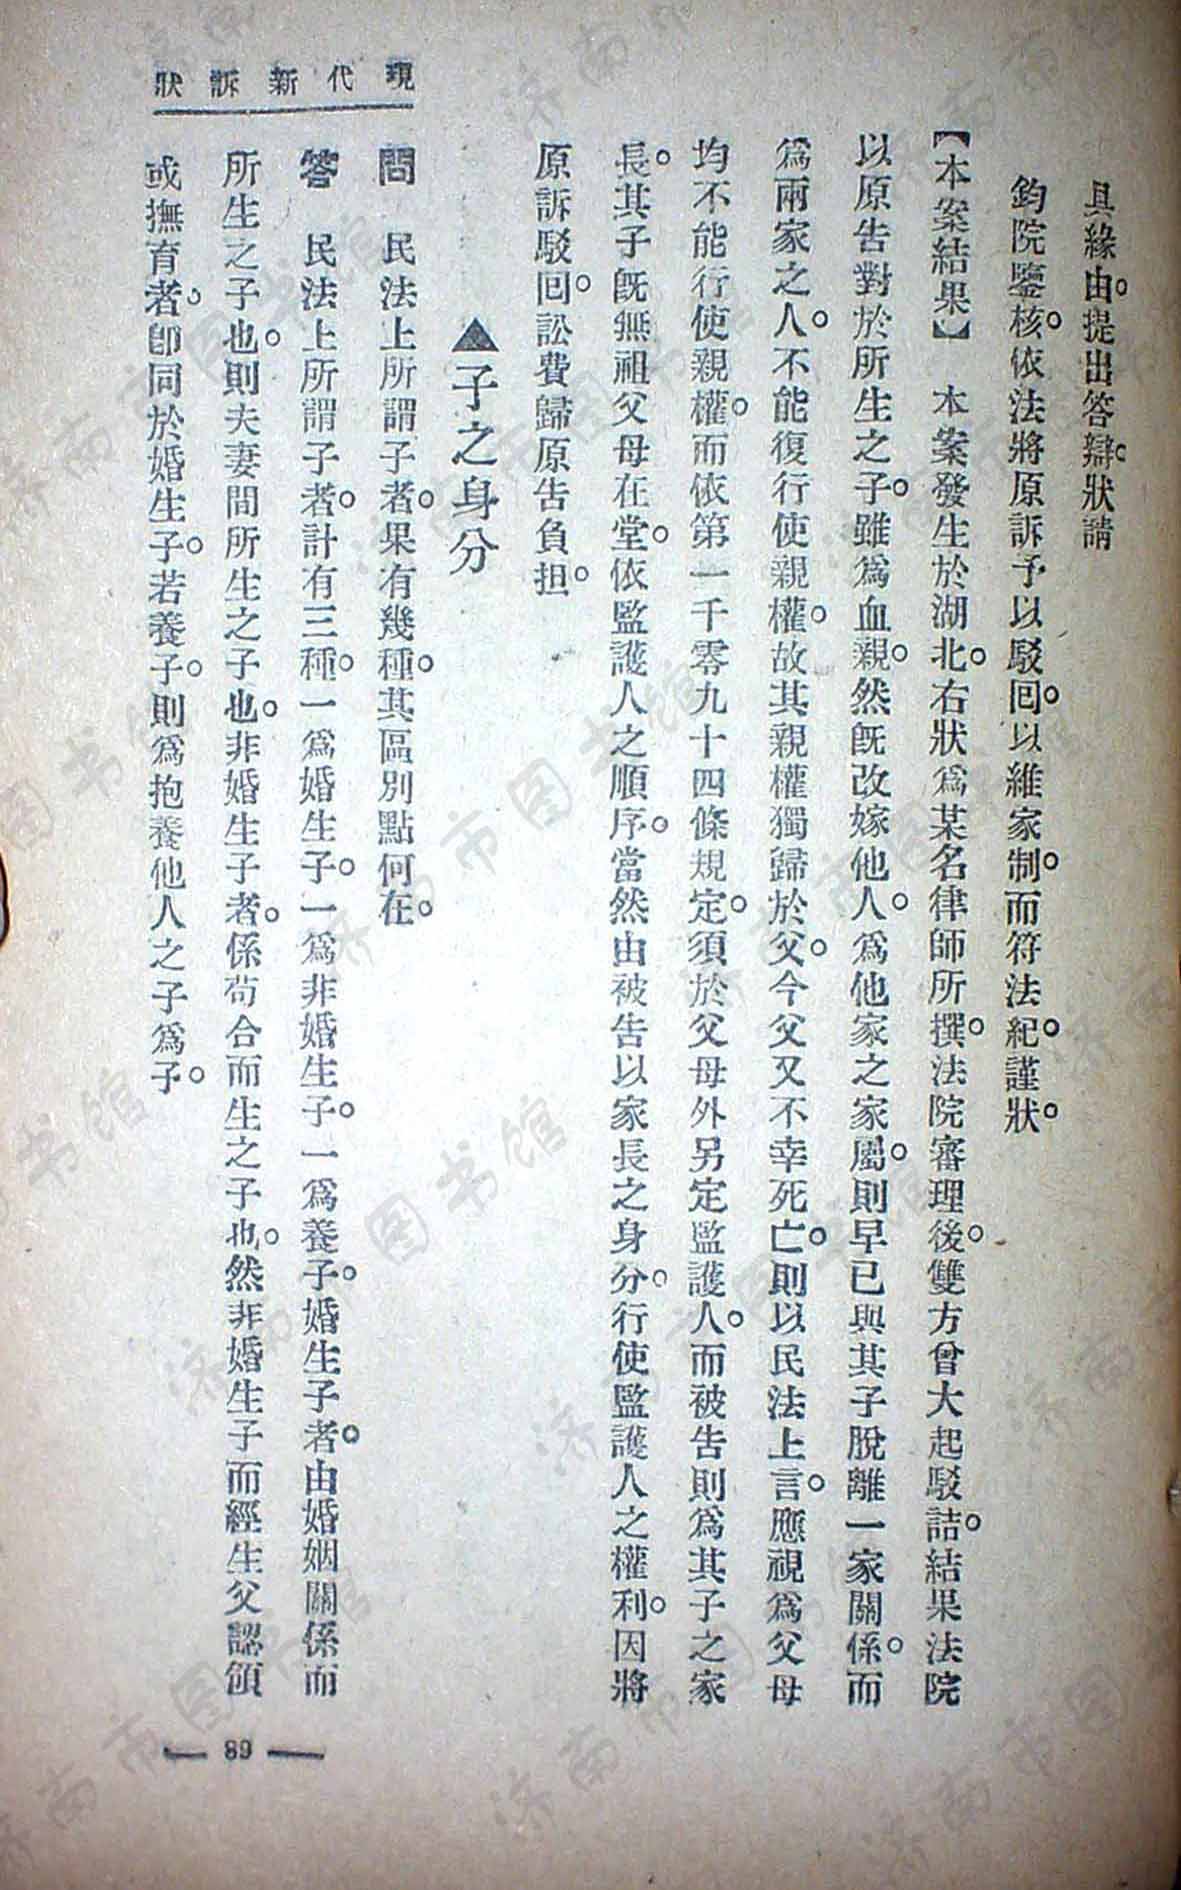 具緣由。提出答辯。狀請
鈞院鑒核。依法將原訴予以駁回。以維家制。而符法紀。謹狀。
【本案結果】　本案發生於湖北。右狀爲某名律師所撰。法院審理後。雙方曾大起駁詰。結果法院
以原告對於所生之子。雖爲血親。然旣改嫁他人。爲他家之家屬。則早已與其子脫離一家關係。而
爲兩家之人。不能復行使親權。故其親權獨歸於父。今父又不幸死亡。則以民法上言。應視爲父母
均不能行使親權。而依第一千零九十四條規定。須於父母外另定監護人。而被告則爲其子之家
長。其子旣無祖父母在堂。依監護人之順序。當然由被告以家長之身分。行使監護人之權利。因將
原訴駁回。訟費歸原告負担。
▲子之身分
問　民法上所謂子者。果有幾種。其區別點何在。
答　民法上所謂子者。計有三種。一爲婚生子。一爲非婚生子。一爲養子。婚生子者。由婚姻關係而
所生之子也。則夫妻間所生之子也。非婚生子者。係苟合而生之子也。然非婚生子而經生父認領
或撫育者。卽同於婚生子。若養子。則爲抱養他人之子爲子。
現代新訴狀
— 89 —
济南市图书馆